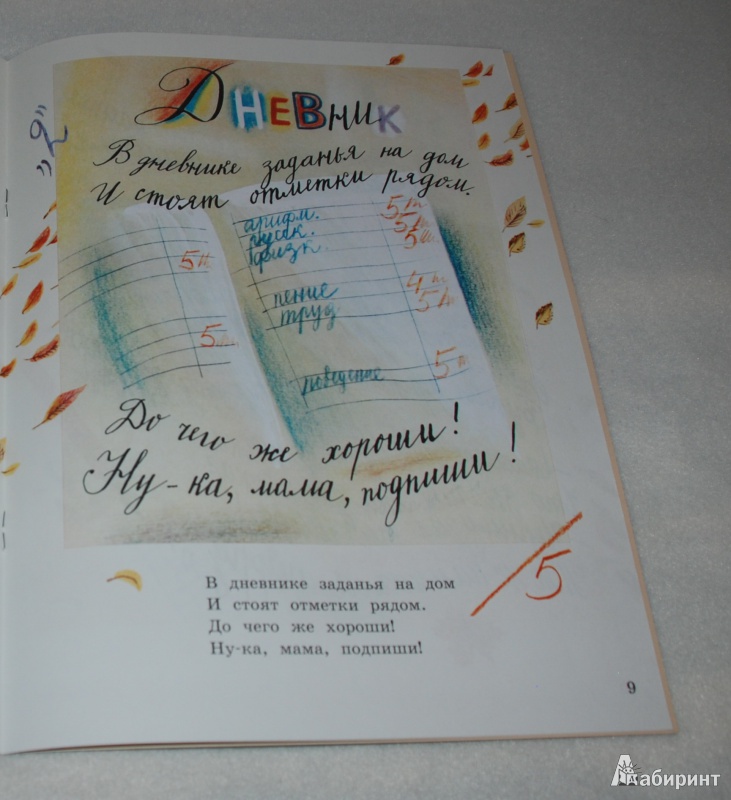 Дневник
"2"
В дневнике заданья на дом
И стоят отметки рядом.
арифм. 5
5
физк. 5
5
пение 4
труд 5
5
поведение 5
До чего же хороши!
Ну-ка, мама, подпиши!
5
В дневнике заданья на дом
И стоят отметки рядом.
До чего же хороши!
Ну-ка, мама, подпиши!
9
Лабиринт